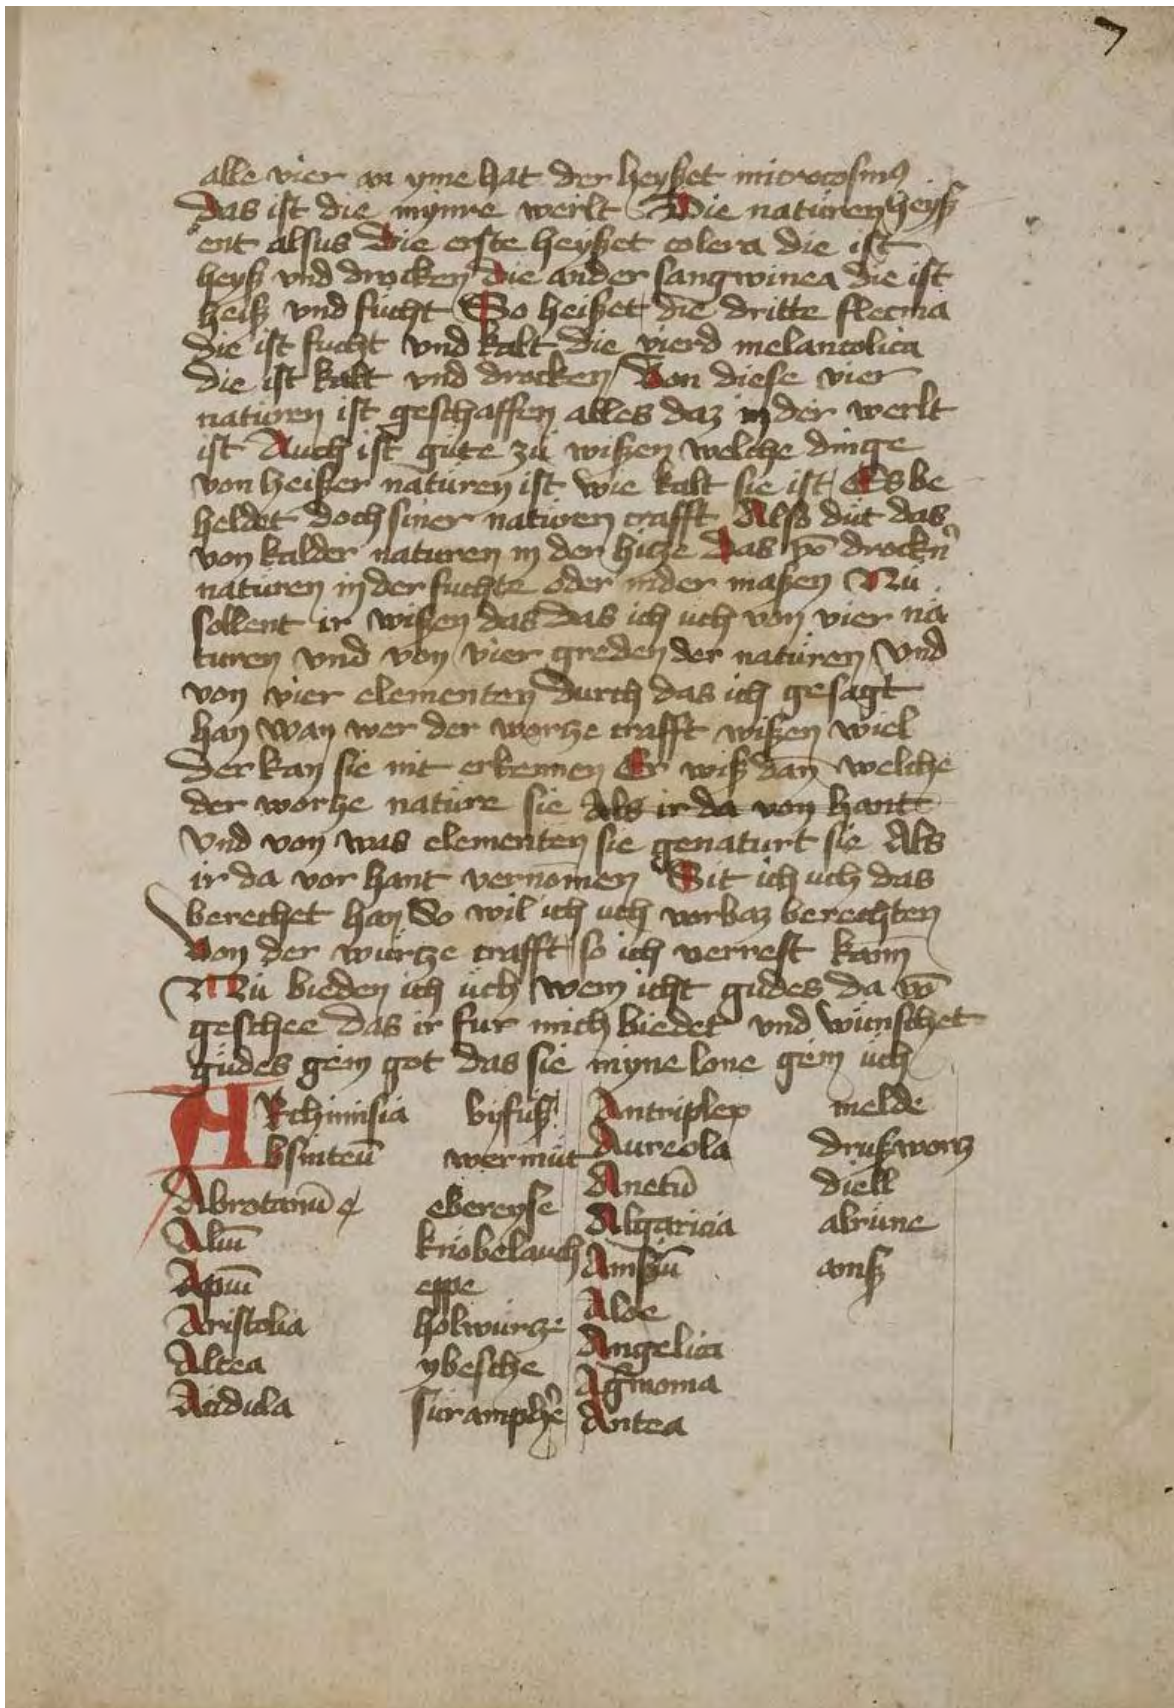 7
alle vier an yme hat der heyßet microcosmꝰ
das ist die mynre werlt Die naturen heyß
ent alsus Die erste heyßet colera die ist
heyß vnd drocken die ander sangwinea die ist
heiß vnd fucht So heißet die dritte flecma
die ist fucht vnd kalt die vierd melancolica
die ist kalt vnd drocken Von diese vier
naturen ist geschaffen alles daz in der werlt
ist Auch ist gute zu wißen welche dinge
von heißer naturen ist wie kalt sie ist Es be
heldet doch siner naturen crafft Alß dut das
von kalder naturen in der hitze das vō drockn̄
naturen in der fuchte oder in der maßen Nu
sollent ir wißen das das ich uch von vier na
turen vnd von vier greden der naturen vnd
von vier elementen durch das ich gesagt
han wan wer der wortze crafft wißen wiel
der kan sie nit erkennen Er wiß dan̄ welche
der wortze nature sie Als ir da von hant
vnd von was elementen sie genaturt sie Als
ir da vor hant vernōmen Sit ich uch das
berechet han So wil ich uch vorbaz berechten
Von der wurtze crafft so ich verrest kann
Nu bieden ich uch wem icht gudes da vō
geschee das ir fur mich biedet vnd wunschet
gudes gein got das sie myne lone gein uch
ARthimisia byfuß Antriplex melde
bsinteū wermut Aureola drußworz
Abrotanū ebereyse Anetū diell
Aliū knobelauch Algaricia abrune
Apiū eppe Anisū anis
Aristolia holwurtze Aloe
Altea ybesche Angelica
Acidula suramphe Agmonia
Antea